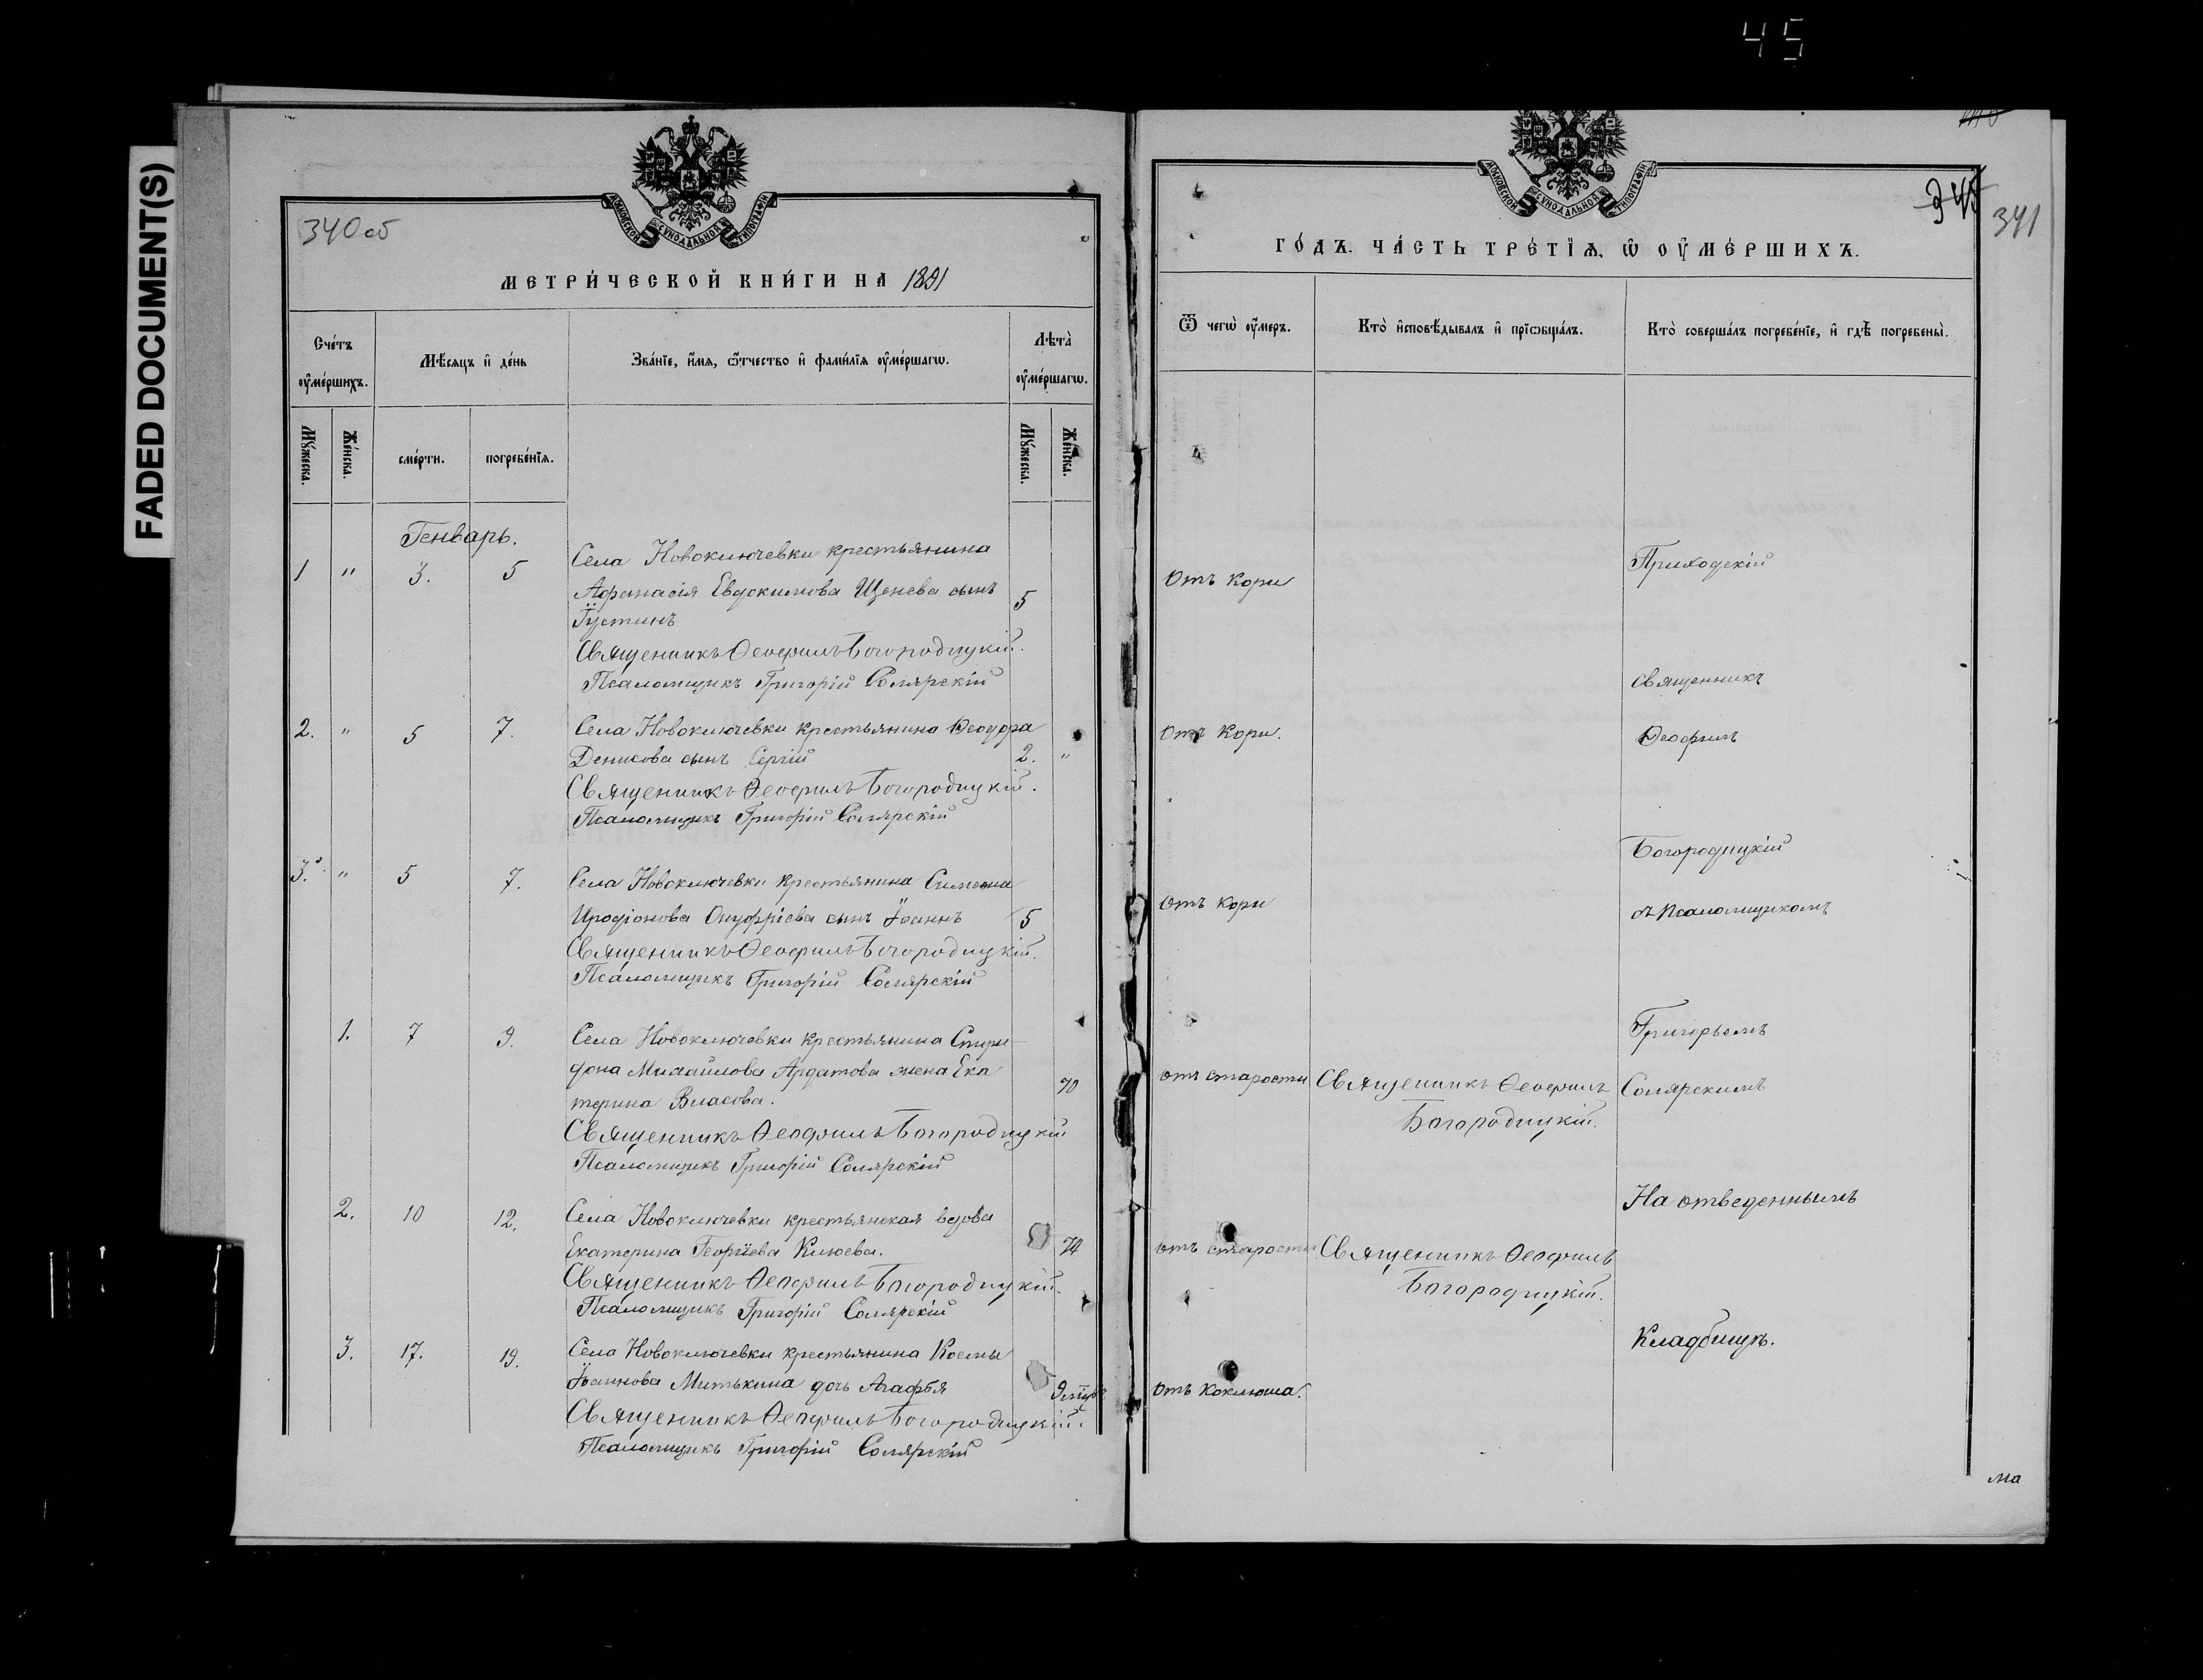 45
FADED DOCUMENT(S)
МОСКОВСКОЙ СѴНОДАЛЬНОЙ ТИПОГРАФІИ
340об
МЕТРИ́ЧЕСКОЙ КНИ́ГИ НА 1891
Сче́тъ ᲂу҆ме́ршихъ.
Мѣ́сѧцъ и҆ де́нь
Зва́нїе, и҆́мѧ, ѻ҆́тчество и҆ фамилїѧ ᲂу҆ме́ршагѡ.
Лѣ́та ᲂу҆ме́ршагѡ.
Мꙋ́жеска.
Же́нска.
сме́рти.
погребе́нїѧ.
Мꙋ́жеска.
Же́нска.
Генварь.
1 " 3. 5 Села Новоключевки крестьянина
Афанасія Евдокимова Щенева сынъ 5
Іустинъ
Священникъ Ѳеофилъ Богородицкій.
Псаломщикъ Григорій Солярскій
2. " 5 7. Села Новоключевки крестьянина Ѳеодора
Денисова сынъ Сергій 2. "
Священникъ Ѳеофилъ Богородицкій.
Псаломщикъ Григорій Солярскій
3. " 5 7. Села Новоключевки крестьянина Симеона
Иродіонова Онуфріева сынъ Іоаннъ 5
Священникъ Ѳеофилъ Богородицкій.
Псаломщикъ Григорій Солярскій
1. 7 9. Села Новоключевки крестьянина Спири-
дона Михайлова Ардатова жена Ека 70
терина Власова.
Священникъ Ѳеофилъ Богородицкій
Псаломщикъ Григорій Солярскій
2. 10 12. Села Новоключевки крестьянская вдова
Екатерина Георгіева Клюева. 74
Священникъ Ѳеофилъ Богородицкій.
Псаломщикъ Григорій Солярскій
3. 17. 19. Села Новоключевки крестьянина Космы
Іоаннова Митькина дочь Агафія
Священникъ Ѳеофилъ Богородицкій.
Псаломщикъ Григорій Солярскій
МОСКОВСКОЙ СѴНОДАЛЬНОЙ ТИПОГРАФІИ
345
341
ГО́ДЪ. ЧА́СТЬ ТРЕ́ТЇѦ, Ѡ҆ ОУ҆МЕ́РШИХЪ.
Ѿ чегѡ̀ ᲂу҆́меръ.
Кто̀ и҆сповѣ́дывалъ и҆ прїѡбща́лъ.
Кто̀ соверша́лъ погребе́нїе, и҆ гдѣ̀ погребены̀.
Отъ кори
Приходскій
Священникъ
Отъ кори.
Ѳеофилъ
Богородицкій
Отъ кори
съ псаломщикомъ
Григорьемъ
отъ старости Священникъ Ѳеофилъ Солярскимъ
Богородицкій.
На отведенномъ
отъ старости Священникъ Ѳеофилъ
Богородицкій.
Кладбищѣ.
Отъ коклюша.
ма